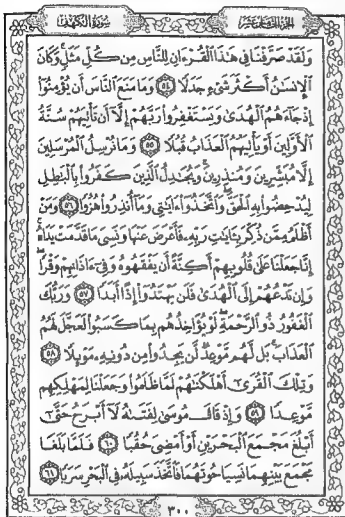 الجزء الخامس عشر سورة الكهف
وَلَقَدْ صَرَّفْنَا فِي هَٰذَا الْقُرْءَانِ لِلنَّاسِ مِن كُلِّ مَثَلٍ وَكَانَ
الْإِنسَٰنُ أَكْثَرَ شَيْءٍ جَدَلًا ٥٤ وَمَا مَنَعَ النَّاسَ أَن يُؤْمِنُوٓا
إِذْ جَآءَهُمُ الْهُدَىٰ وَيَسْتَغْفِرُوا رَبَّهُمْ إِلَّآ أَن تَأْتِيَهُمْ سُنَّةُ
الْأَوَّلِينَ أَوْ يَأْتِيَهُمُ الْعَذَابُ قُبُلًا ٥٥ وَمَا نُرْسِلُ الْمُرْسَلِينَ
إِلَّا مُبَشِّرِينَ وَمُنذِرِينَ وَيُجَٰدِلُ الَّذِينَ كَفَرُوا بِالْبَٰطِلِ
لِيُدْحِضُوا بِهِ الْحَقَّ وَاتَّخَذُوٓا ءَايَٰتِي وَمَآ أُنذِرُوا هُزُوًا ٥٦ وَمَنْ
أَظْلَمُ مِمَّن ذُكِّرَ بِـَٔايَٰتِ رَبِّهِۦ فَأَعْرَضَ عَنْهَا وَنَسِيَ مَا قَدَّمَتْ يَدَاهُ
إِنَّا جَعَلْنَا عَلَىٰ قُلُوبِهِمْ أَكِنَّةً أَن يَفْقَهُوهُ وَفِيٓ ءَاذَانِهِمْ وَقْرًا
وَإِن تَدْعُهُمْ إِلَى الْهُدَىٰ فَلَن يَهْتَدُوٓا إِذًا أَبَدًا ٥٧ وَرَبُّكَ
الْغَفُورُ ذُو الرَّحْمَةِ لَوْ يُؤَاخِذُهُم بِمَا كَسَبُوا لَعَجَّلَ لَهُمُ
الْعَذَابَ بَل لَّهُم مَّوْعِدٌ لَّن يَجِدُوا مِن دُونِهِۦ مَوْئِلًا ٥٨
وَتِلْكَ الْقُرَىٰٓ أَهْلَكْنَٰهُمْ لَمَّا ظَلَمُوا وَجَعَلْنَا لِمَهْلِكِهِم
مَّوْعِدًا ٥٩ وَإِذْ قَالَ مُوسَىٰ لِفَتَىٰهُ لَآ أَبْرَحُ حَتَّىٰٓ
أَبْلُغَ مَجْمَعَ الْبَحْرَيْنِ أَوْ أَمْضِيَ حُقُبًا ٦٠ فَلَمَّا بَلَغَا
مَجْمَعَ بَيْنِهِمَا نَسِيَا حُوتَهُمَا فَاتَّخَذَ سَبِيلَهُۥ فِي الْبَحْرِ سَرَبًا ٦١
٣٠٠